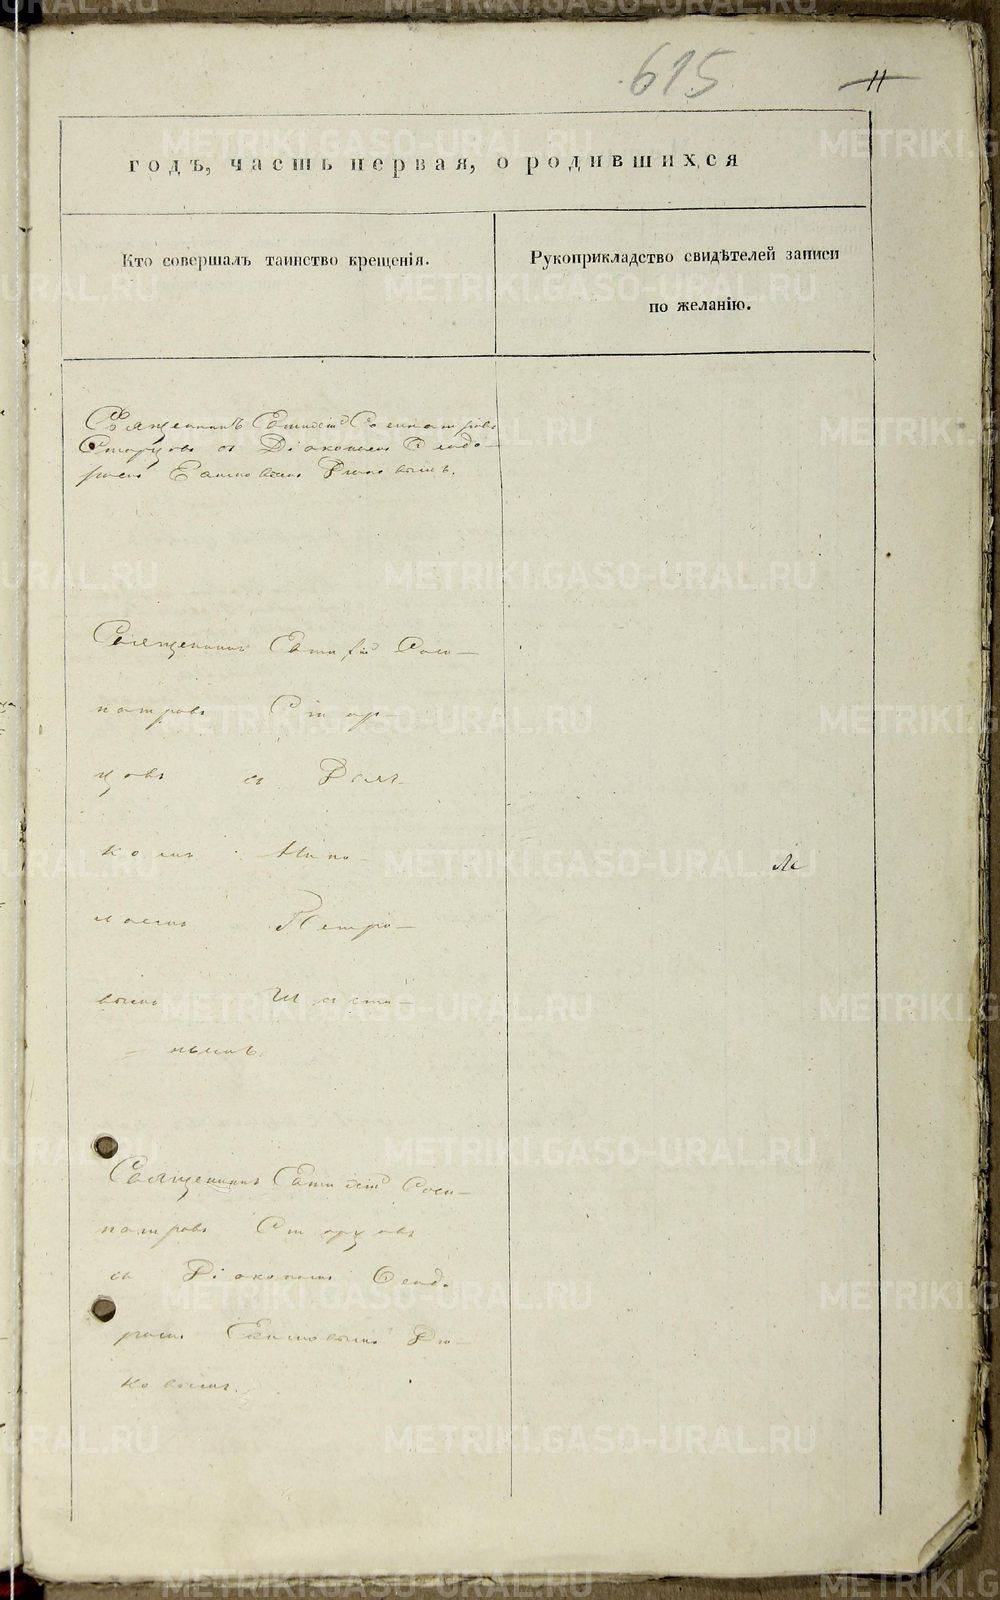 615
11
годъ, часть первая, о родившихся
Кто совершалъ таинство крещенія.
Рукоприкладство свидѣтелей записи
по желанію.
Священникъ Евтихій Сосипатровъ
Сторцовъ съ Діакономъ Феодо-
ромъ
Священникъ Евтихій Соси-
патровъ Стор-
цовъ съ Дьяч-
комъ Нико-
лаемъ Петро-
вымъ
нымъ.
Священникъ Евтихій Соси-
патровъ Сторцовъ
съ Діакономъ Феод.
ромъ
ковымъ.
METRIKI.GASO-URAL.RU